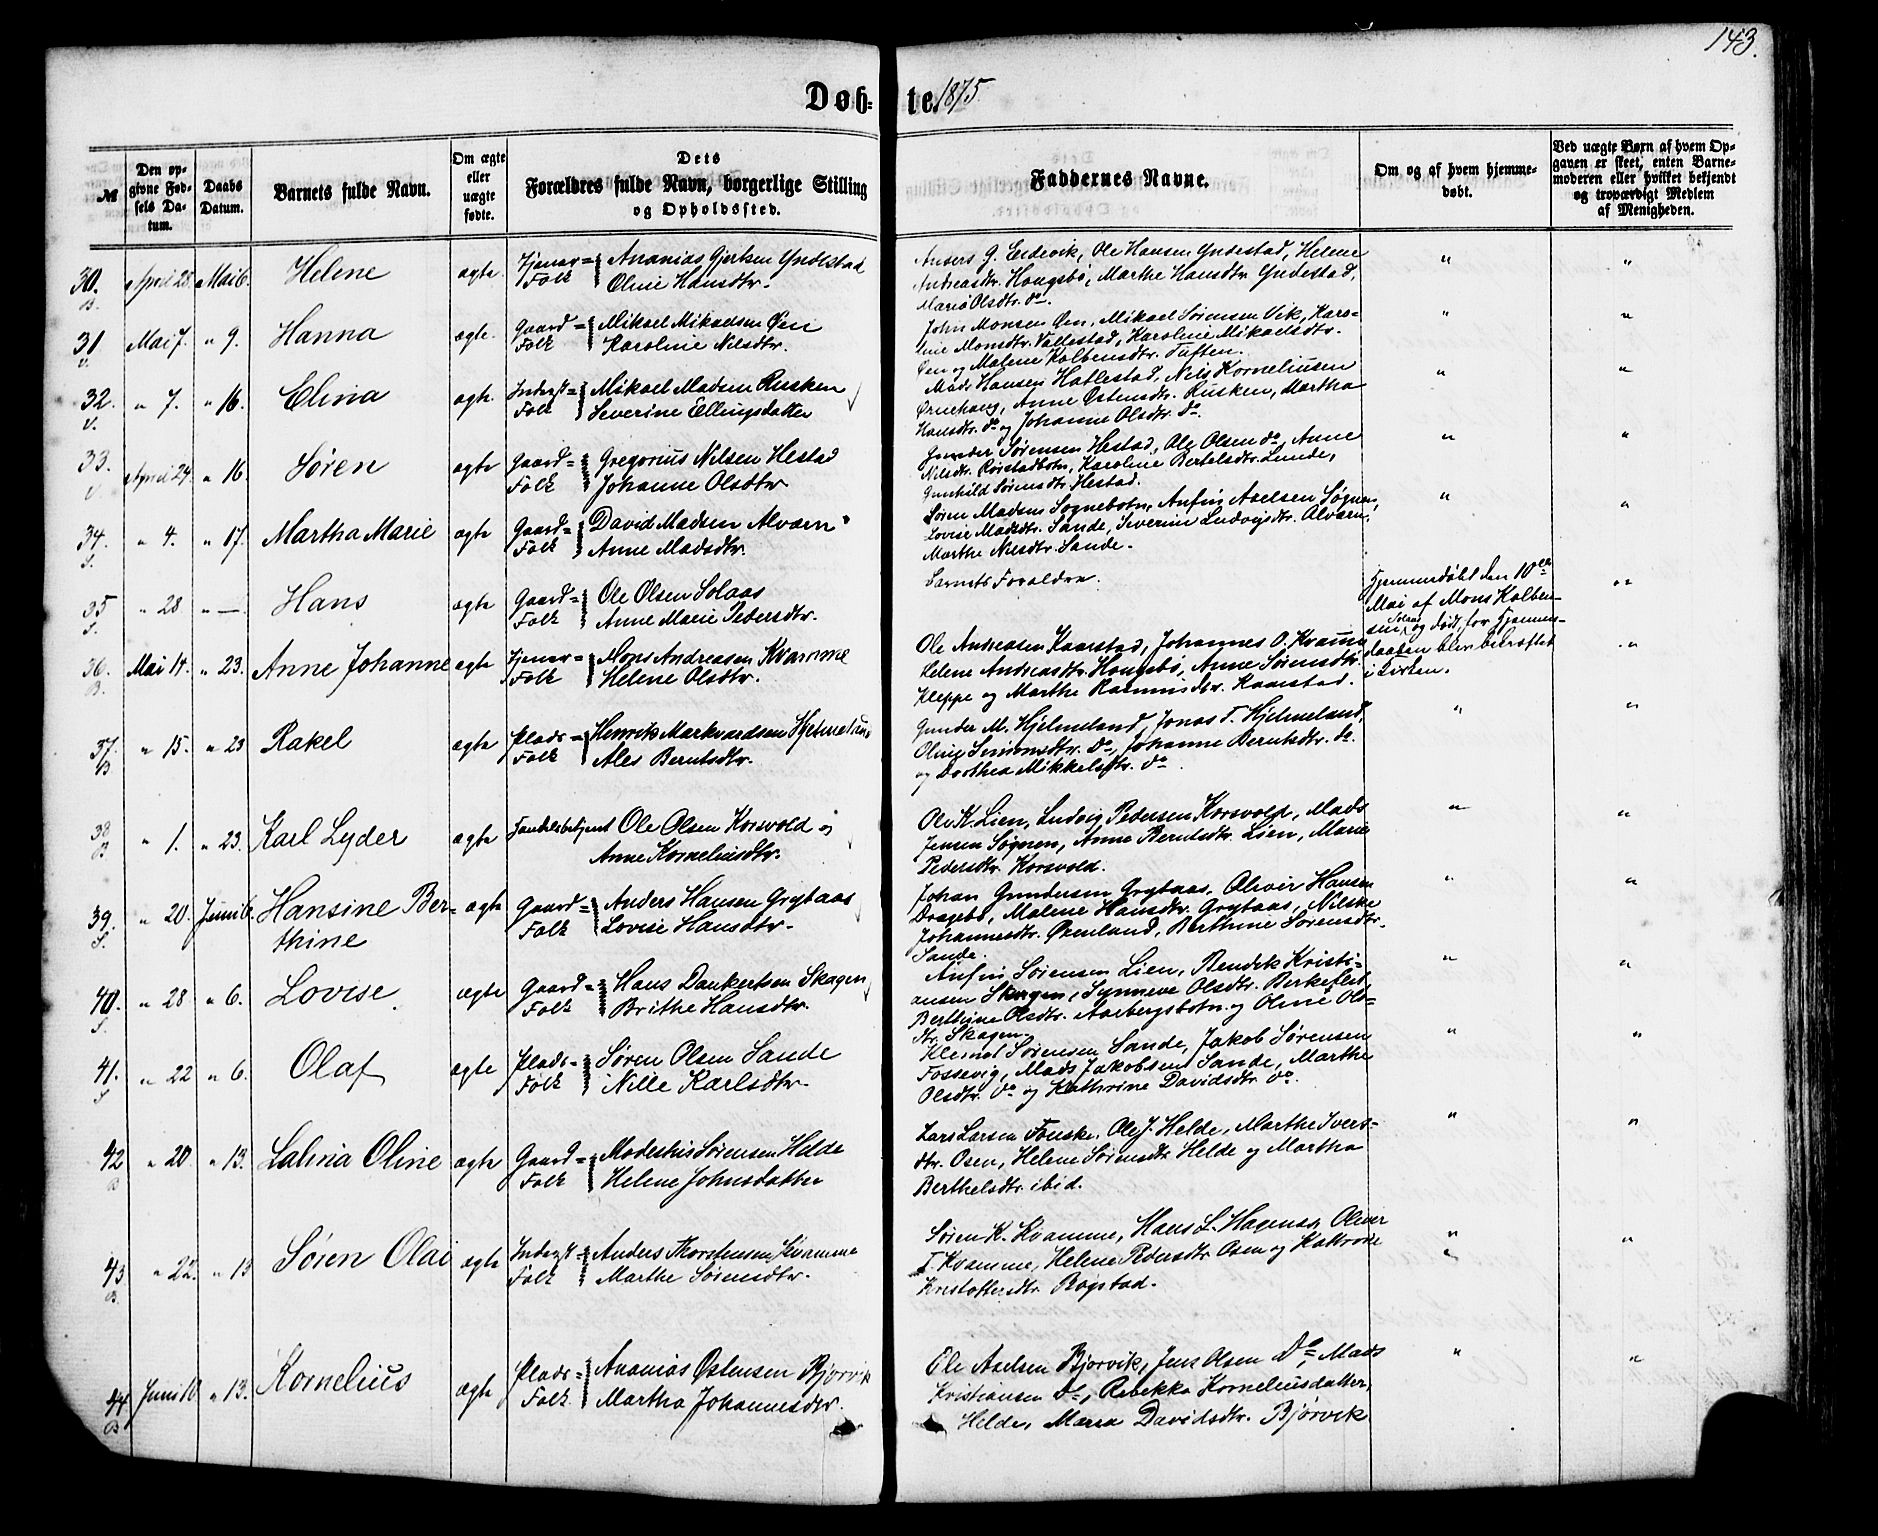 143.
Døbte. 1875
№
Den opgivne Fødsels Datum.
Daabs Datum.
Barnets fulde Navn.
Om ægte eller uægte fødte.
Dets Forældres fulde Navn, borgerlige Stilling og Opholdssted.
Faddernes Navne.
Om og af hvem hjemmedøbt.
Ved uægte Børn af hvem Opgaven er skeet, enten Barnemoderen eller hvilket bekjendt og troværdigt Medlem af Menigheden.
30. B. April 28. Mai 6. Helene ægte. Tjener= Folk Ananias Gjertsen Yndestad
Oline Hansdtr.
Anders G. Eidevik, Ole Hansen Yndestad, Helene
Andreasdtr. Hougsbø, Marthe Hansdtr. Yndestad,
Maria Olsdtr. do. " "
31 V. Mai 7. " 9. Hanna ægte. Gaard= Folk Mikael Mikaelsen Øen
Karoline Nilsdtr.
John Monsen Øen, Mikael Sørensen Vik, Karo-
line Monsdtr. Vallestad, Karoline Mikaelsdtr.
Øen og Malene Kolbensdtr. Tuften. " "
32. V. " 7. " 16. Elina ægte Inderst= Folk Mikael Madsen Rusken
Severine Ellingsdatter
Mads Hansen Hatlestad, Nils Korneliussen
Ørnehoug, Anne Østensdtr. Rusken, Martha
Hansdtr. do og Johanne Olsdtr. do. " "
33. V. April 24. " 16. Søren ægte Gaard= Folk Gregorius Nilsen Hestad
Johanne Olsdtr
Gunder Sørensen Hestad, Ole Olsen do, Anne
Nilsdtr. Rørstadbotn, Karoline Bertelsdtr. Lunde,
Gunhild Sørensdtr. Hestad. " "
34. S. " 4. " 17. Martha Marie ægte Gaard= Folk David Madsen Alværn
Anne Madsdtr.
Søren Madsen Sognebotn, Anfin Axelsen Søgnen,
Lovise Madsdtr. Sande, Severine Ludvigsdtr. Alværn,
Marthe Nilsdtr. Sande. " "
35 S. " 28 " — Hans ægte Gaard= Folk Ole Olsen Solaas
Anne Marie Pedersdtr.
Barnets Forældre.
Hjemmedøbt den 10de
Mai af Mons Kolben-
sen Solaas, og død, før Hjemme-
daaben blev bekræftet
i Kirken. "
36. B. Mai 14. " 23. Anne Johanne ægte Tjener= Folk Mons Andreasen Kvamme
Helene Olsdtr.
Ole Andreasen Kaarstad, Johannes O. Kvamme
Helene Andreasdtr. Hougsbø, Anne Sørensdtr.
Kleppe og Marthe Rasmusdtr. Kaarstad. "
37. B " 15. " 23 Rakel ægte Plads= Folk Henrik Markvardsen Hjelmeland
Ales Berntsdtr.
Gunder M. Hjelmeland, Jonas T. Hjelmeland,
Oline Simonsdtr. do, Johanne Berntsdtr. do.
og Dorthea Mikkelsdtr. do. " "
38 B " 1. " 23. Karl Lyder ægte Handelsbetjent Ole Olsen Korsvold og
Anne Korneliusdtr.
Ole K. Lien, Ludvig Pedersen Korsvold, Mads
Jensen Søgnen, Anne Berntsdtr. Lien, Marie
Pedersdtr. Korsvold. " "
39. S. " 20. Juni 6. Hansine Ber-
thine ægte Gaard= Folk Anders Hansen Grytaas
Lovise Hansdtr.
Johan Gundersen Grytaas, Oliver Hansen
Dragebø, Malene Hansdtr. Grytaas, Nilske
Johannesdtr. Øxenland, Berthine Sørensdtr.
Sande. " "
40. S. " 28 " 6. Lovise ægte Gaard= Folk Hans Dankertsen Skagen
Brithe Hansdtr.
Anfin Sørensen Lien, Bendik Kristi-
ansen Skagen, Synneve Olsdtr. Birkeflet
Berthine Olsdtr. Aarbergsbotn og Oline Ols-
dtr. Skagen. " "
41. S " 22 " 6. Olaf ægte Plads= Folk Søren Olsen Sande
Nille Karlsdtr.
Klemet Sørensen Sande, Jakob Sørensen
Fossevig, Mads Jakobsen Sande, Marthe
Olsdtr. do og Kathrine Davidsdtr. do. " "
42 B " 20. " 13. Lalina Oline ægte Gaard= Folk Modesthus Sørensen Helde
Helene Johnsdatter
Lars Larsen Fonske, Ole J. Helde, Marthe Ivers-
dtr. Osen, Helene Sørensdtr. Helde og Martha
Berthelsdtr. ibid. " "
43 B. " 22. " 13 Søren Olai ægte Inderst= Folk Anders Thorstensen Kvamme
Marthe Sørensdtr.
Søren K. Kvamme, Hans L. Hagenæs, Oliver
T. Kvamme, Helene Pedersdtr. Osen og Kathrine
Kristoffersdtr. Rogstad. " "
44 B Juni 10 " 13. Kornelius ægte Plads= Folk Ananias Østensen Bjorvik
Martha Johannesdtr.
Ole Axelsen Bjorvik, Jens Olsen Do, Mads
Kristiansen do, Rebekka Korneliusdatter,
Helde, Maria Davidsdtr. Bjørvik " "